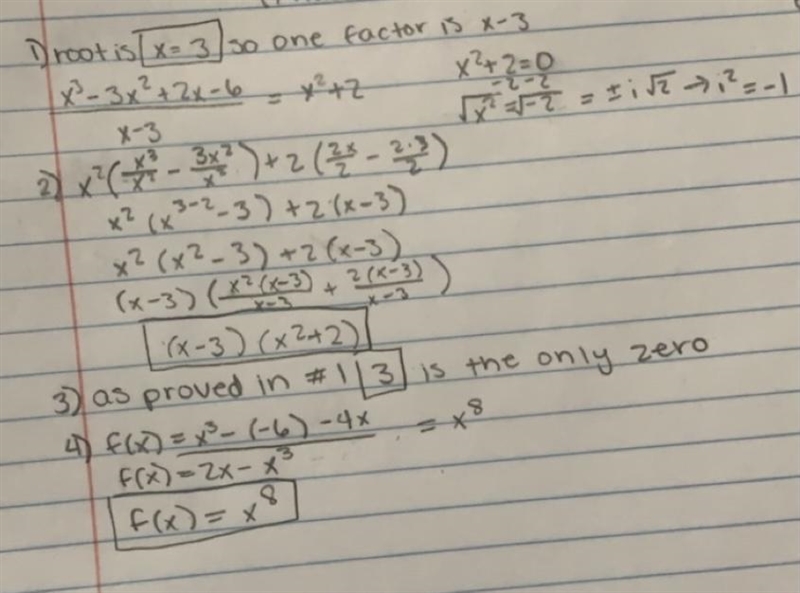 1) root is x = 3 so one factor is x-3
x³-3x²+2x-6 / x-3 = x²+2
x²+2=0
-2 -2
√x² = √-2 = ± i √2 → i² = -1
2) x² (x³/x² - 3x²/x²) + 2 (2x/2 - 2·3/2)
x² (x³⁻² - 3) + 2 (x-3)
x² (x² - 3) + 2 (x-3)
(x-3) (x²(x-3)/x-3 + 2(x-3)/x-3)
(x-3) (x²+2)
3) as proved in #1 3 is the only zero
4) f(x) = x³ - (-6) - 4x = x⁸
f(x) = 2x - x³
f(x) = x⁸